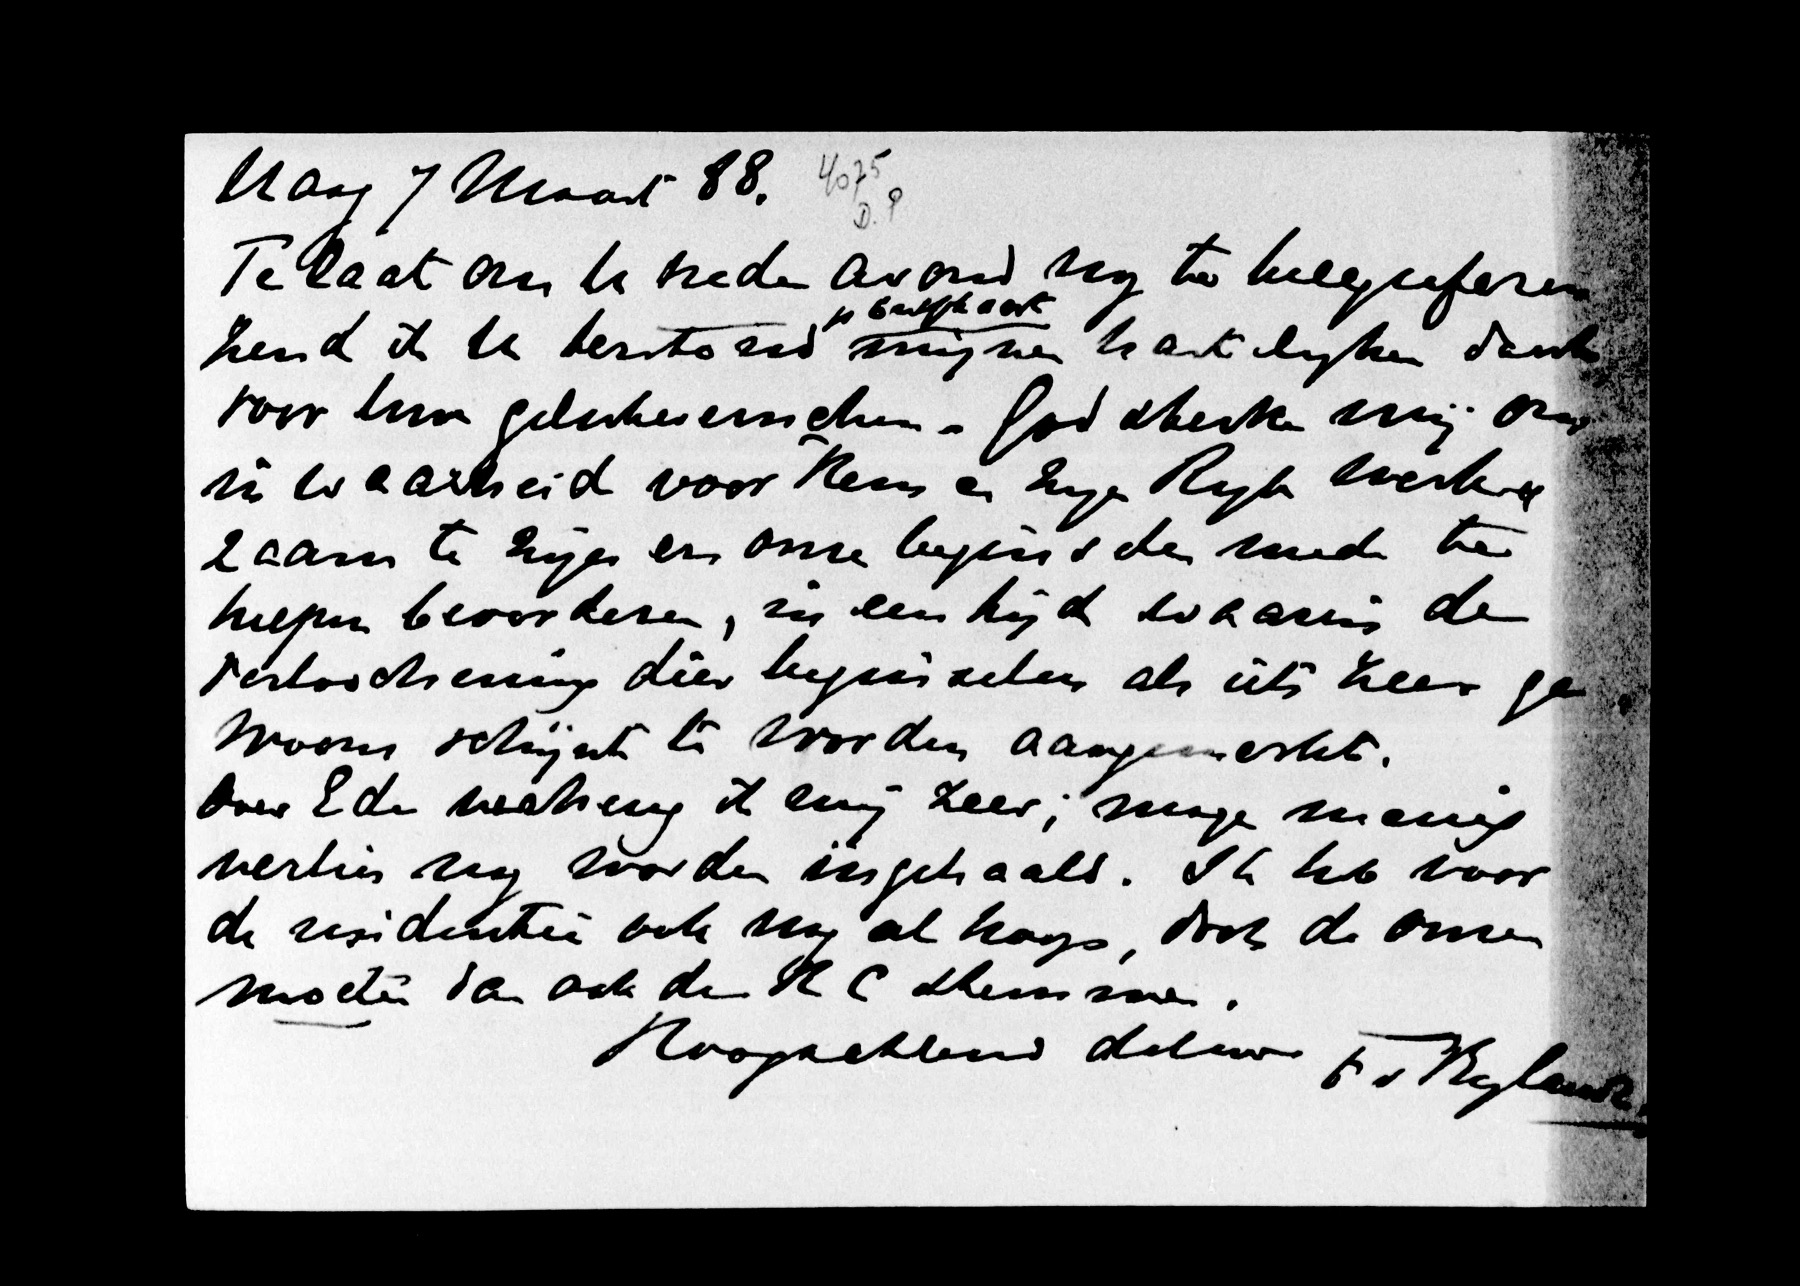 Haag 7 Maart 88. 4075
D. P
Te laat om U heden avond nog te telegraferen
zend ik U bevstond mijnen hartelyken dank
p briefkaart
voor Uw gelukwenschen. God sterke mij om
in waarheid voor Hem en zijn Ryk werk
zaam te zijn en onze beginselen mede te
helpen bevorderen, in een tijd waarin de
verloochening dier beginselen als iets zeer ge
woons schijnt te worden aangemerkt.
Over Ede verheug ik mij zeer; moge menig
verlies nog worden ingehaald. Ik heb voor
de residentie ook nog al hoop, doch de onzen
moeten dan ook den RC stemmen.
Hoogachtend
v Bylandt